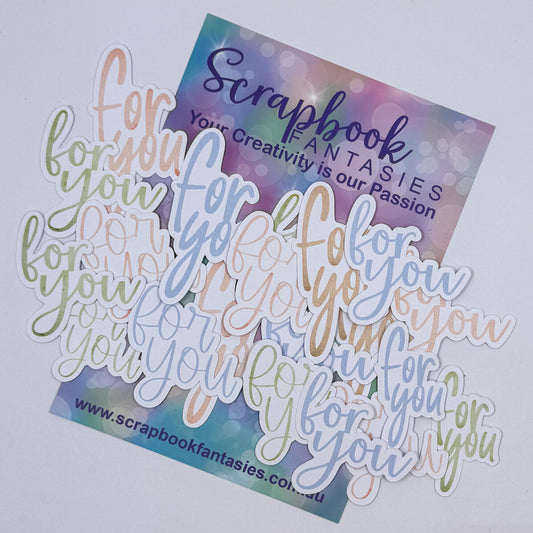 Scrapbook
FANTASIES
Your Creativity is our Passion
for
you
for
you
for
yo
for
you
for
yo
for
you
for
you
for
you
for
you
for
you
for
you
for
y
for
you
for
you
you
you
you
www.scrapbookfantasies.com.au